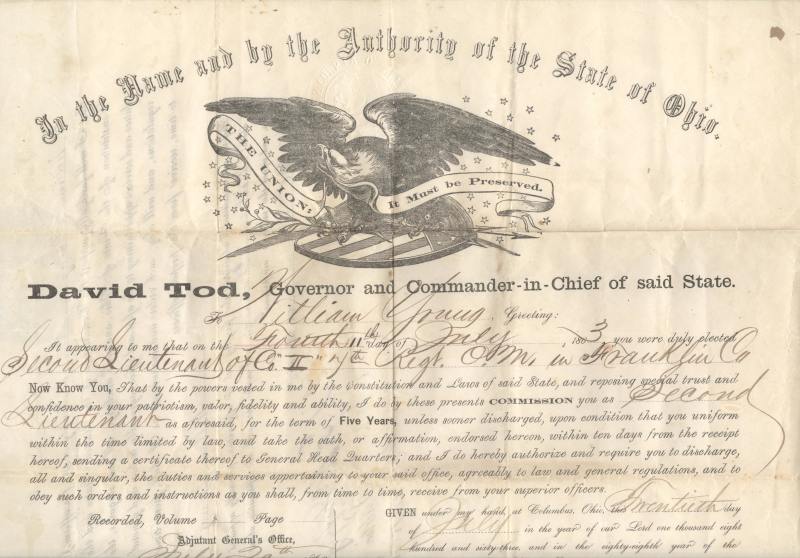 In the Name and by the Authority of the State of Ohio.
THE UNION;
It Must be Preserved.
David Tod, Governor and Commander-in-Chief of said State.
To William Young, Greeting:
It appearing to me that on the Fourth day of July 1863, you were duly elected
Second Lieutenant of Co. "H" 7th Regt. O. M. in Franklin Co
Now Know You, That by the powers vested in me by the Constitution and Laws of said State, and reposing special trust and
confidence in your patriotism, valor, fidelity and ability, I do by these presents COMMISSION you as Second
Lieutenant as aforesaid, for the term of Five Years, unless sooner discharged, upon condition that you uniform
within the time limited by law, and take the oath, or affirmation, endorsed hereon, within ten days from the receipt
hereof, sending a certificate thereof to General Head Quarters; and I do hereby authorize and require you to discharge,
all and singular, the duties and services appertaining to your said office, agreeably to law and general regulations, and to
obey such orders and instructions as you shall, from time to time, receive from your superior officers.
GIVEN under my hand, at Columbus, Ohio, this Twentieth day
of July in the year of our Lord one thousand eight
hundred and sixty-three, and in the eighty-eighth year of the
Recorded, Volume Page
Adjutant General's Office,
July 20th